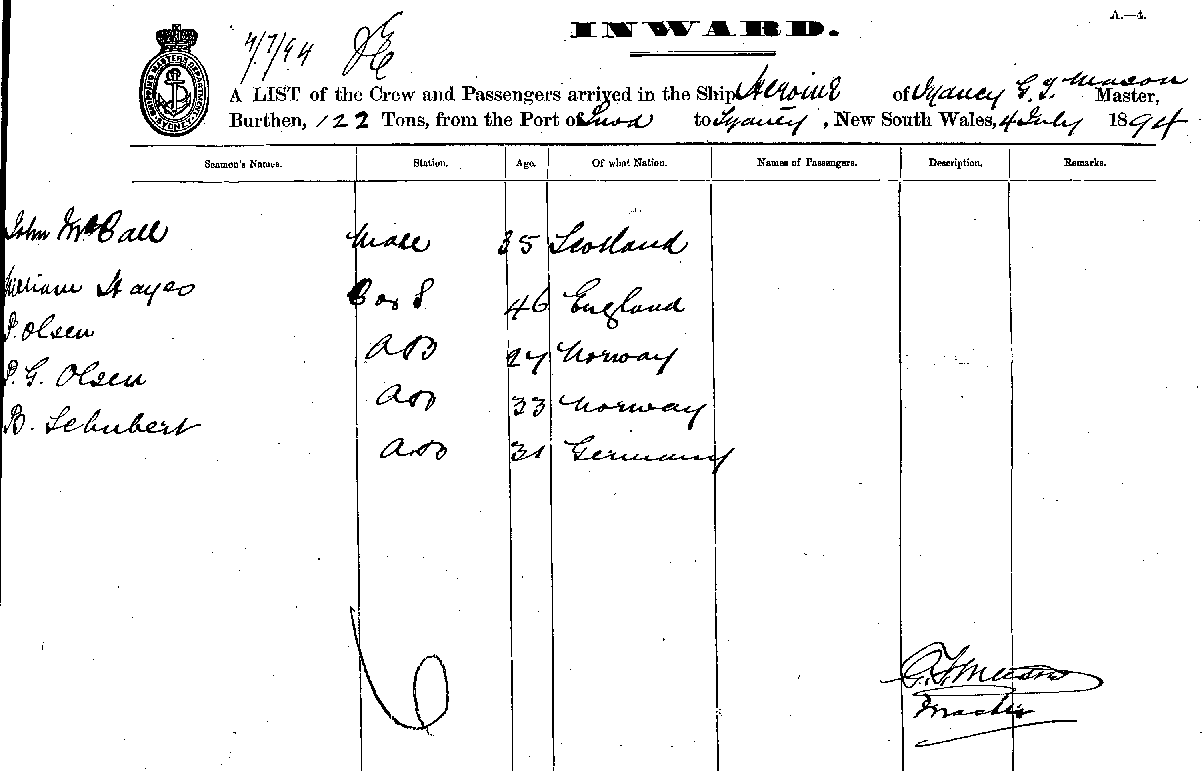 A.—4.
INWARD.
7/7/94
A LIST of the Crew and Passengers arrived in the Ship Heroine of Sydney G. T. Mason Master,
Burthen, 122 Tons, from the Port of to Sydney, New South Wales, 4 July 1894
Seamen's Names. Station. Age. Of what Nation. Names of Passengers. Description. Remarks.
John McCall Mate 35 Scotland
William Hayes C & S 46 England
P. Olsen AB 27 Norway
P. G. Olsen AB 33 Norway
B. Schubert AB 31 Germany
6
G. T. Mason
Master